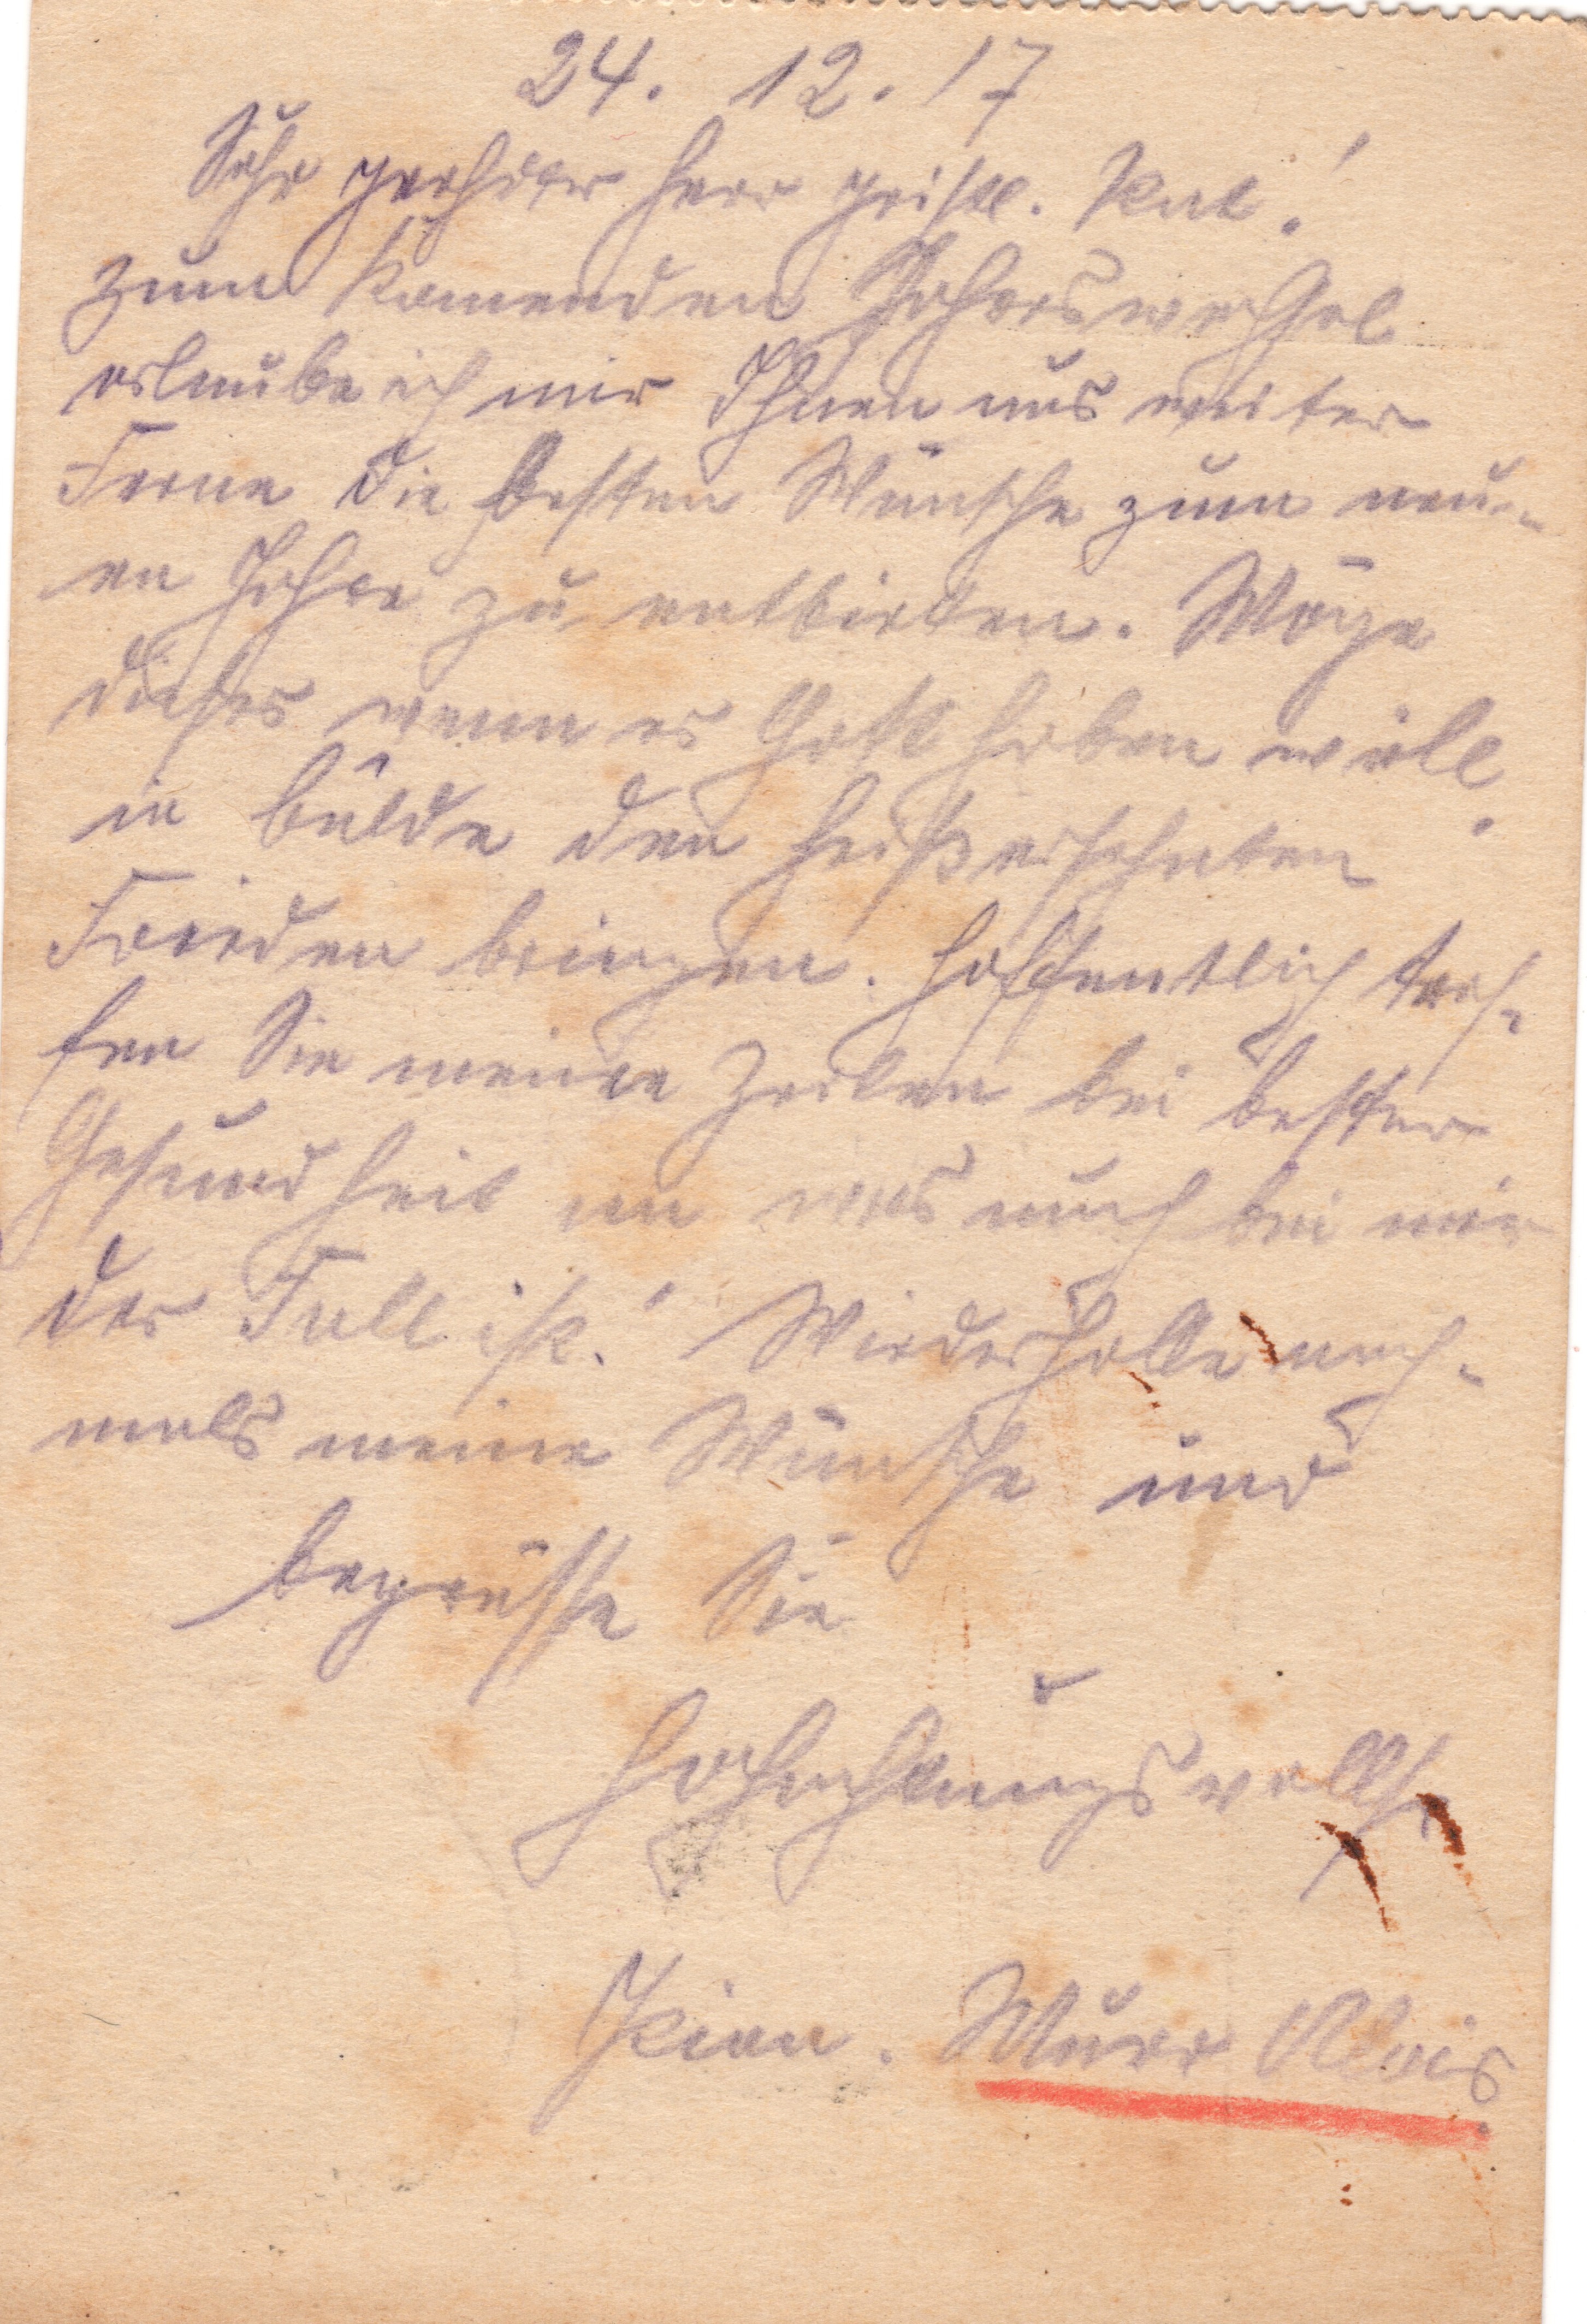 24. 12. 17
Sehr geehrter Herr geistl. Rat!
Zum komenden Jahreswechsel
erlaube ich mir Ihnen aus weiter
Ferne die besten Wünsche zum neu-
en Jahre zu entbieten. Möge
dieses wenn es Gott haben will
in bälde den heißersehnten
Frieden bringen. Hoffentlich tref-
fen Sie meine Zeilen bei bester
Gesundheit an was auch bei mir
der Fall ist! Wiederholle noch-
mals meine Wünsche und
begrüsse Sie
Hochachtungsvollst
Pion. Murr Alois